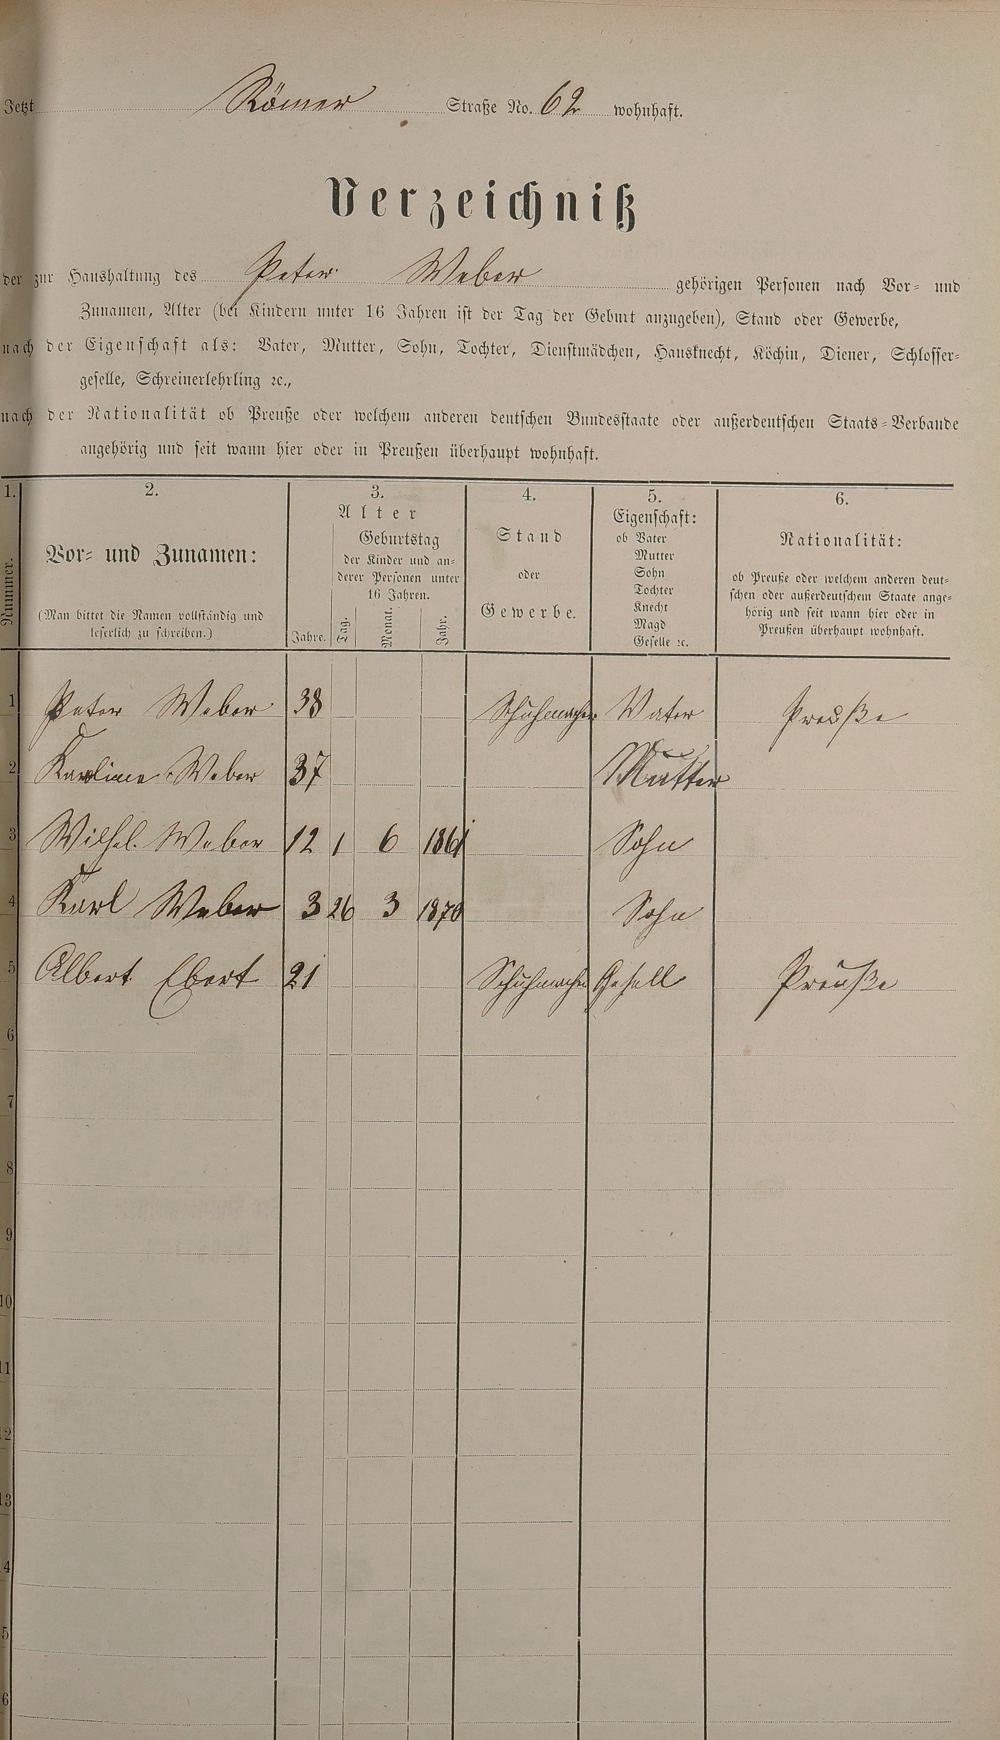 Jetzt Römer Straße No. 62 wohnhaft.
Verzeichniß
der zur Haushaltung des Peter Weber gehörigen Personen nach Vor- und
Zunamen, Alter (bei Kindern unter 16 Jahren ist der Tag der Geburt anzugeben), Stand oder Gewerbe,
nach der Eigenschaft als: Vater, Mutter, Sohn, Tochter, Dienstmädchen, Hausknecht, Köchin, Diener, Schlosser-
geselle, Schreinerlehrling ꝛc.,
nach der Nationalität ob Preuße oder welchem anderen deutschen Bundesstaate oder außerdeutschen Staats-Verbande
angehörig und seit wann hier oder in Preußen überhaupt wohnhaft.
1.
Nummer.
2.
Vor- und Zunamen:
(Man bittet die Namen vollständig und
leserlich zu schreiben.)
3.
Alter
Jahre.
Geburtstag
der Kinder und an-
derer Personen unter
16 Jahren.
Tag. Monat. Jahr.
4.
Stand
oder
Gewerbe.
5.
Eigenschaft:
ob Vater
Mutter
Sohn
Tochter
Knecht
Magd
Geselle ꝛc.
6.
Nationalität:
ob Preuße oder welchem anderen deut-
schen oder außerdeutschem Staate ange-
hörig und seit wann hier oder in
Preußen überhaupt wohnhaft.
1 Peter Weber 38 Schuhmacher Vater Preuße
2 Karline Weber 37 Mutter
3 Wilhel. Weber 12 1 6 1861 Sohn
4 Karl Weber 3 26 3 1870 Sohn
5 Albert Ebert 21 Schuhmacher Gesell Preuße
6
7
8
9
10
11
12
13
4
5
6